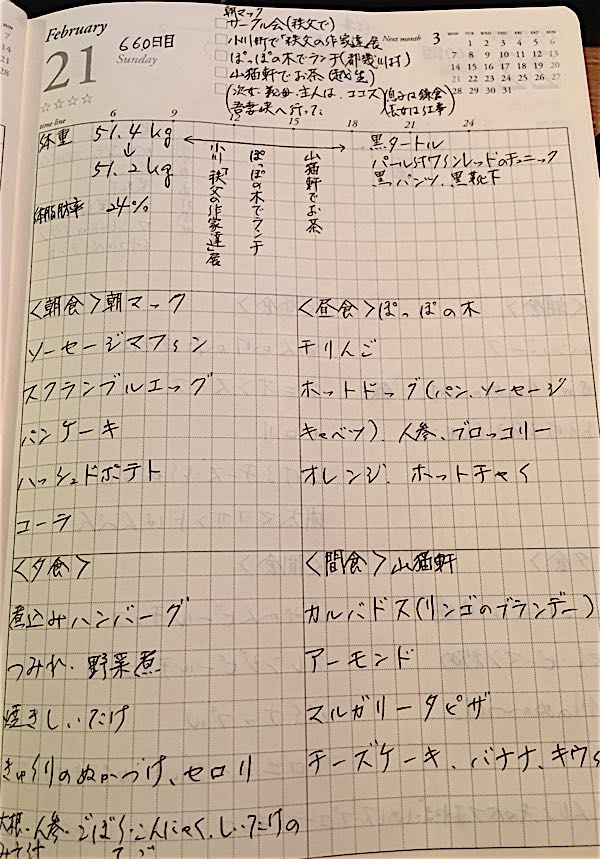 February
21
660日目
Sunday
朝マック
サークル会(秩父で)
小川町で「秩父の作家達」展
ぽっぽの木でランチ(都幾川村)
山猫軒でお茶(越生)
(次女、義母、主人は、ココス
吾妻峡へ行って
息子は鎌倉
長女は仕事)
Next month 3
MON TUE WED THU FRI SAT SUN
1 2 3 4 5 6
7 8 9 10 11 12 13
14 15 16 17 18 19 20
21 22 23 24 25 26 27
28 29 30 31
time line 6 9 12 15 18 21 24
体重 51.4kg
↓
51.2kg
体脂肪率 24%
小川「秩父の作家達」展
ぽっぽの木でランチ
山猫軒でお茶
黒タートル
パールSTワインレッドのチュニック
黒パンツ、黒靴下
<朝食>朝マック
ソーセージマフィン
スクランブルエッグ
パンケーキ
ハッシュドポテト
コーラ
<昼食>ぽっぽの木
干りんご
ホットドッグ(パン、ソーセージ
キャベツ)、人参、ブロッコリー
オレンジ、ホットチャイ
<夕食>
煮込みハンバーグ
つみれ・野菜煮
焼きしいたけ
きゅうりのぬかづけ、セロリ
大根・人参・ごぼう・こんにゃく、しいたけの
みそ汁
<間食>山猫軒
カルバドス(リンゴのブランデー)
アーモンド
マルガリータピザ
チーズケーキ、バナナ、キウイ